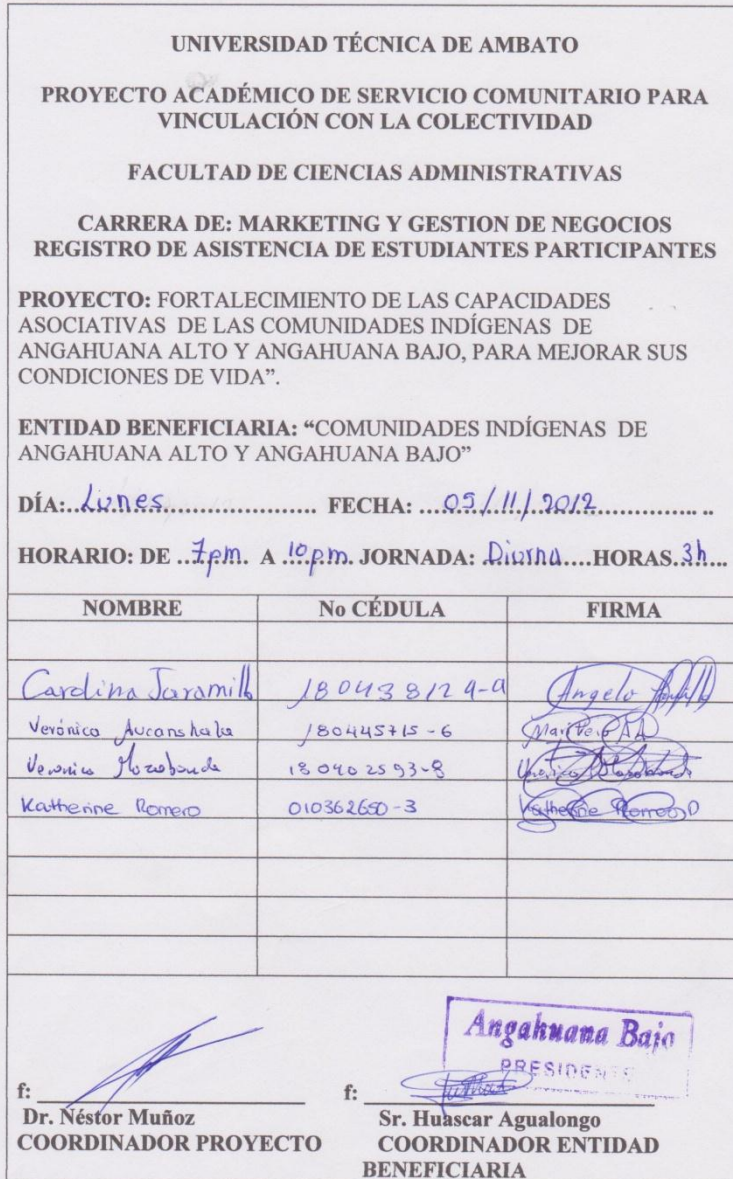 UNIVERSIDAD TÉCNICA DE AMBATO
PROYECTO ACADÉMICO DE SERVICIO COMUNITARIO PARA
VINCULACIÓN CON LA COLECTIVIDAD
FACULTAD DE CIENCIAS ADMINISTRATIVAS
CARRERA DE: MARKETING Y GESTION DE NEGOCIOS
REGISTRO DE ASISTENCIA DE ESTUDIANTES PARTICIPANTES
PROYECTO: FORTALECIMIENTO DE LAS CAPACIDADES
ASOCIATIVAS DE LAS COMUNIDADES INDÍGENAS DE
ANGAHUANA ALTO Y ANGAHUANA BAJO, PARA MEJORAR SUS
CONDICIONES DE VIDA”.
ENTIDAD BENEFICIARIA: “COMUNIDADES INDÍGENAS DE
ANGAHUANA ALTO Y ANGAHUANA BAJO”
DÍA: Lunes FECHA: 05/11/2012
HORARIO: DE 7pm. A 10pm. JORNADA: Diurna HORAS 3h
NOMBRE No CÉDULA FIRMA
Carolina Jaramillo Angelo
Verónica 180445715-6
Veronica 180402593-8 Veronica
Katherine Romero 010362650-3 Katherine Romero D
Angahuana Bajo
PRESIDENTE
f: f:
Dr. Néstor Muñoz Sr. Huascar Agualongo
COORDINADOR PROYECTO COORDINADOR ENTIDAD
BENEFICIARIA